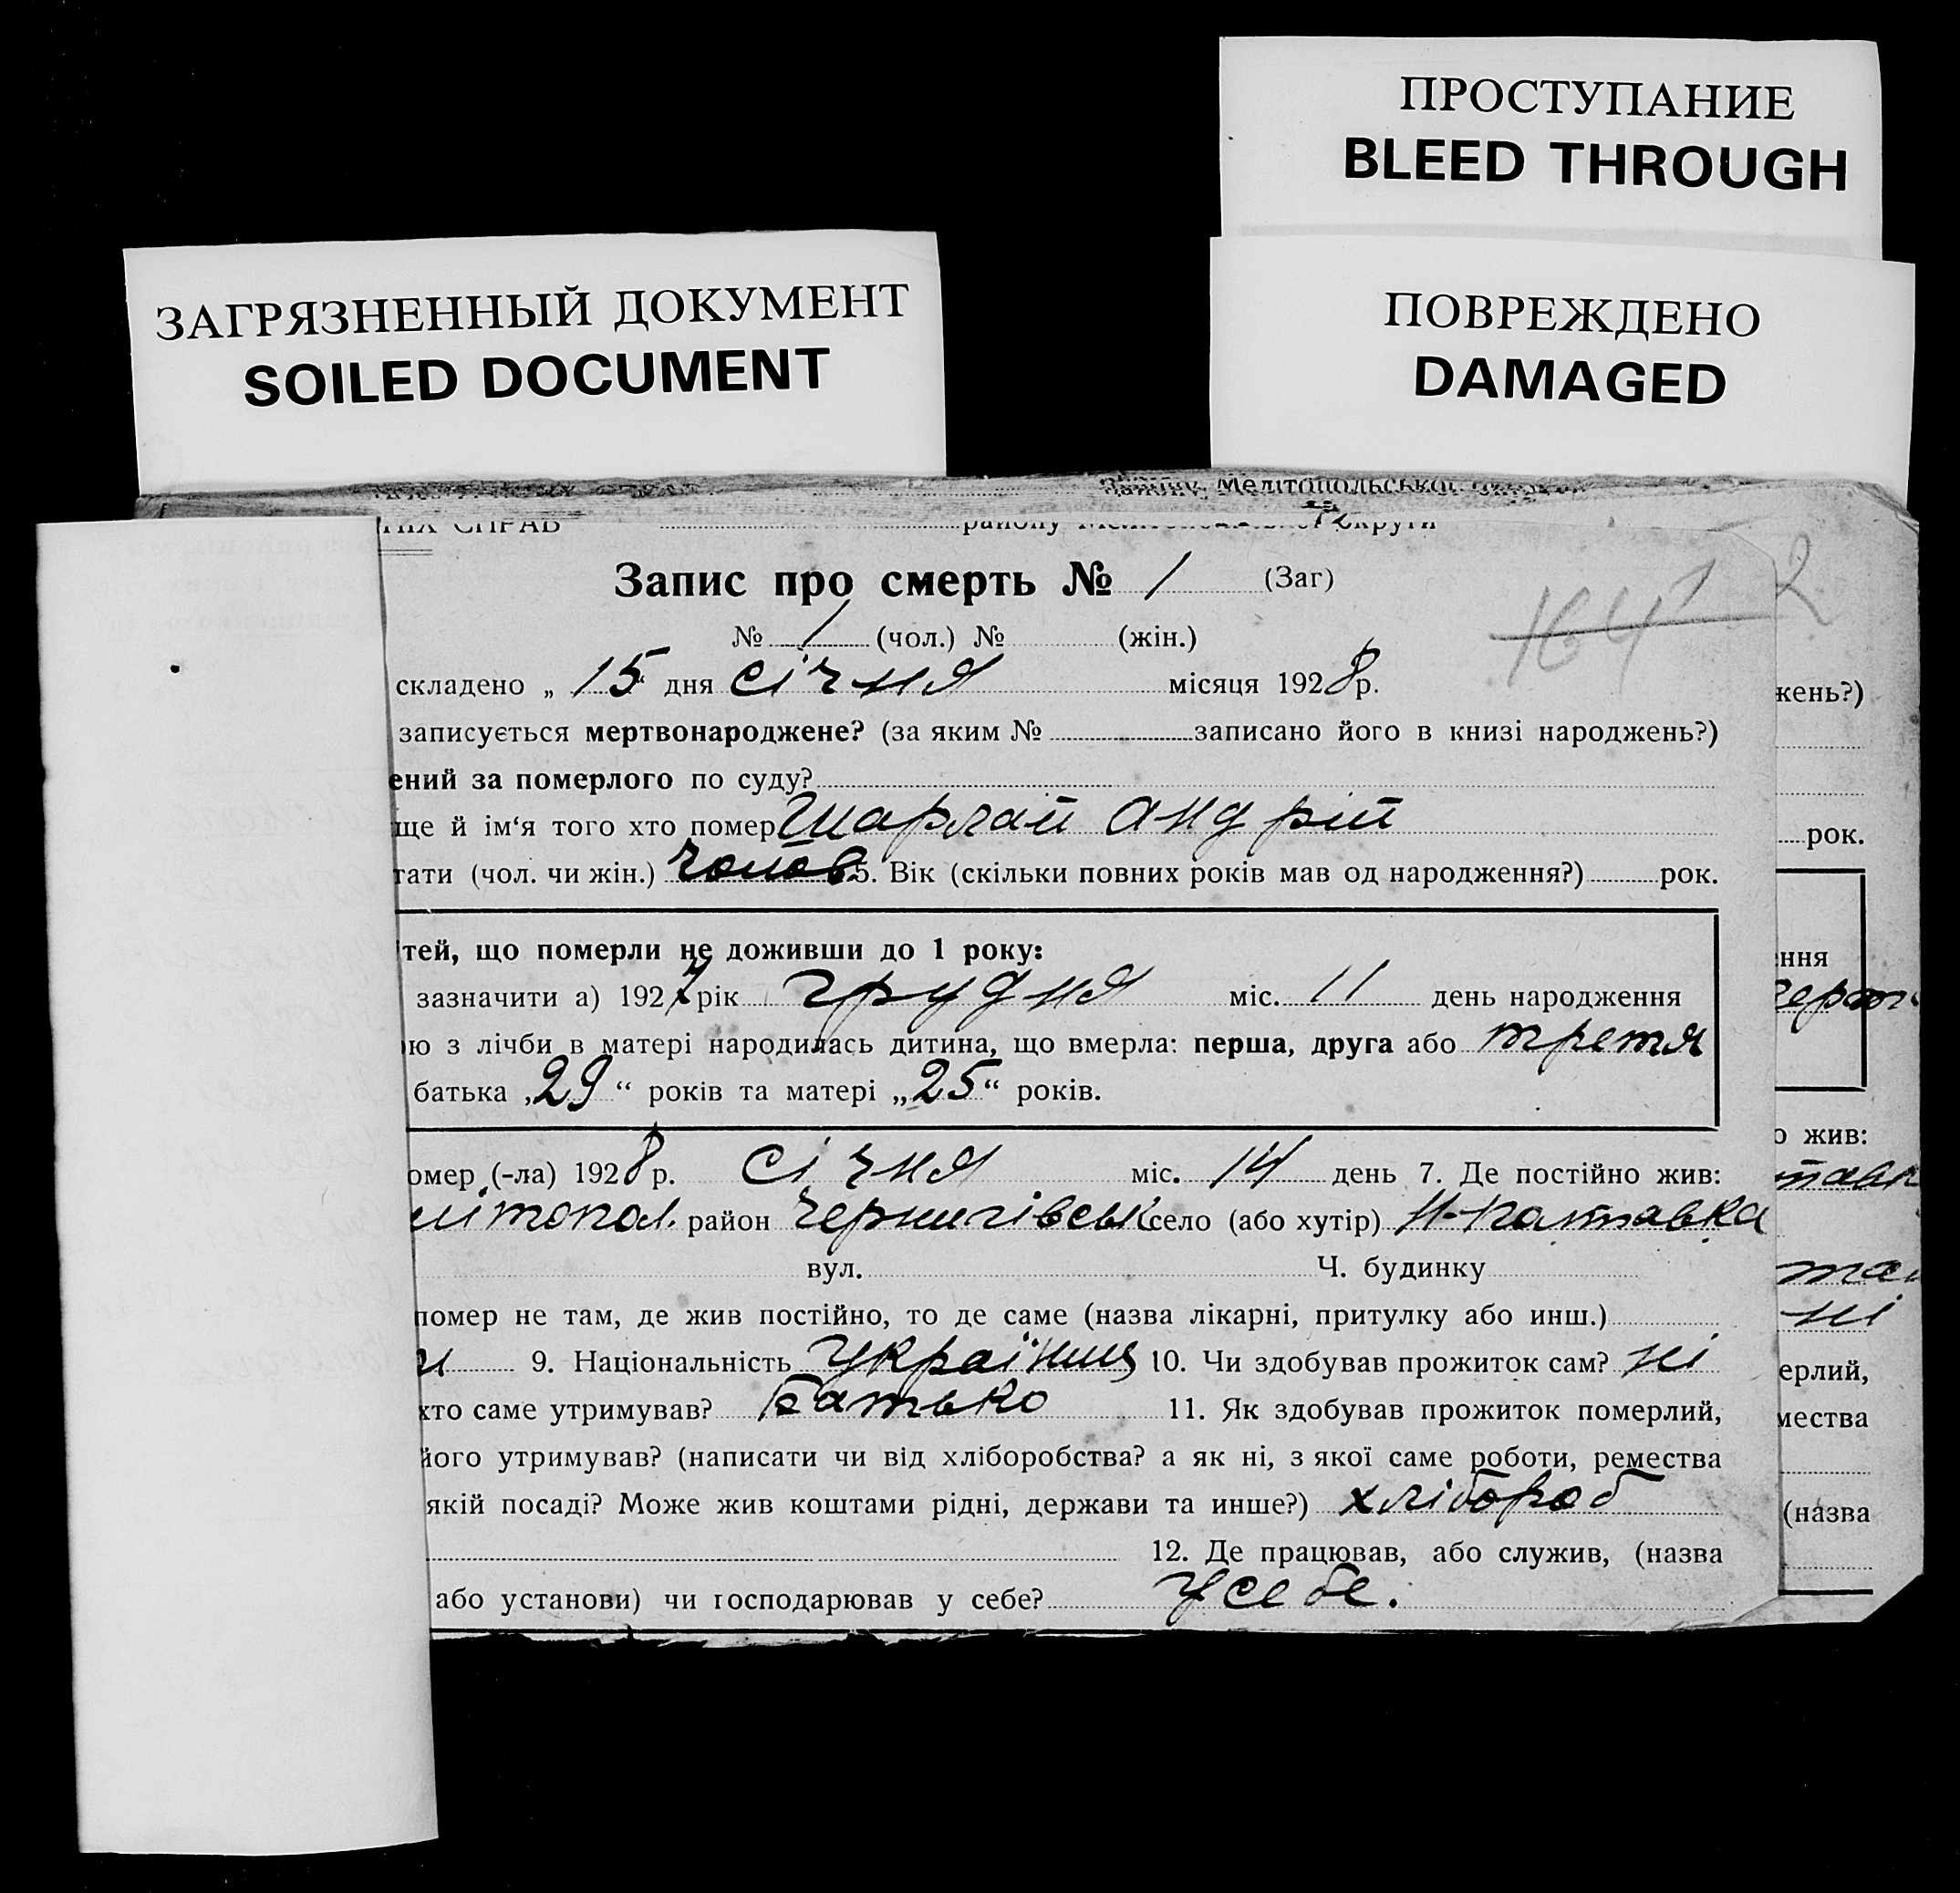 ПРОСТУПАНИЕ
BLEED THROUGH
ЗАГРЯЗНЕННЫЙ ДОКУМЕНТ
SOILED DOCUMENT
ПОВРЕЖДЕНО
DAMAGED
Мелітопольської
СПРАВ району округи
Запис про смерть № 1 (Заг)
164 1 2
№ 1 (чол.) № (жін.)
складено „ 15 “ дня січня місяця 1928 р.
жень?)
записується мертвонароджене? (за яким № записано його в книзі народжень?)
ений за померлого по суду?
ще й ім‘я того хто помер Шарлай Андрій
рок.
тати (чол. чи жін.) 5. Вік (скільки повних років мав од народження?) рок.
тей, що померли не доживши до 1 року:
ння
зазначити а) 1927 рік грудня міс. 11 день народження
ою з лічби в матері народилась дитина, що вмерла: перша, друга або третя
батька „29“ років та матері „25“ років.
о жив:
омер (-ла) 1928 р. січня міс. 14 день 7. Де постійно жив:
літопол. район Чернигівськ село (або хутір) Н-Полтавка
вул. Ч. будинку
помер не там, де жив постійно, то де саме (назва лікарні, притулку або инш.)
ні
9. Національність українец 10. Чи здобував прожиток сам? ні
ерлий,
хто саме утримував? батько 11. Як здобував прожиток померлий,
мества
його утримував? (написати чи від хліборобства? а як ні, з якої саме роботи, ремества
якій посаді? Може жив коштами рідні, держави та инше?) хлібороб
(назва
12. Де працював, або служив, (назва
або установи) чи господарював у себе? У себе.